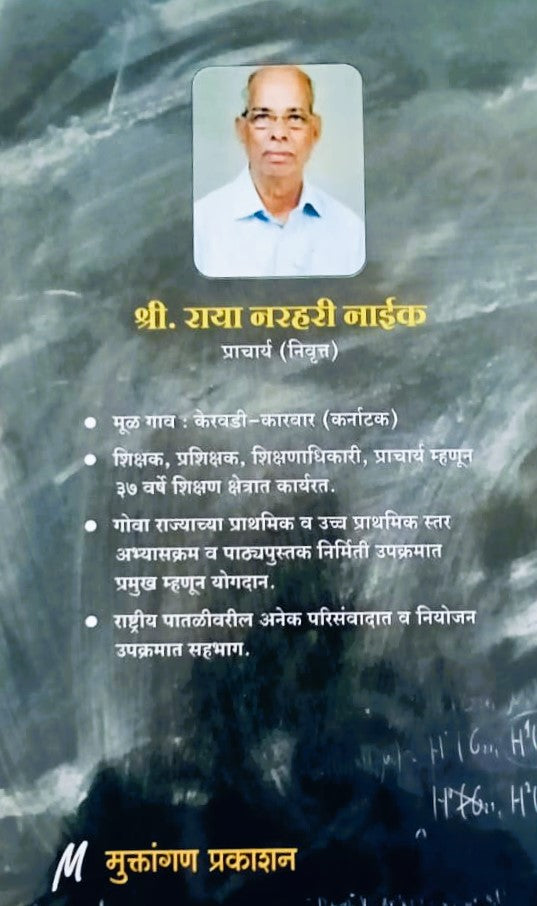 श्री. राया नरहरी नाईक
प्राचार्य (निवृत्त)
● मूळ गाव : केरवडी-कारवार (कर्नाटक)
● शिक्षक, प्रशिक्षक, शिक्षणाधिकारी, प्राचार्य म्हणून
३७ वर्षे शिक्षण क्षेत्रात कार्यरत.
● गोवा राज्याच्या प्राथमिक व उच्च प्राथमिक स्तर
अभ्यासक्रम व पाठ्यपुस्तक निर्मिती उपक्रमात
प्रमुख म्हणून योगदान.
● राष्ट्रीय पातळीवरील अनेक परिसंवादात व नियोजन
उपक्रमात सहभाग.
M मुक्तांगण प्रकाशन